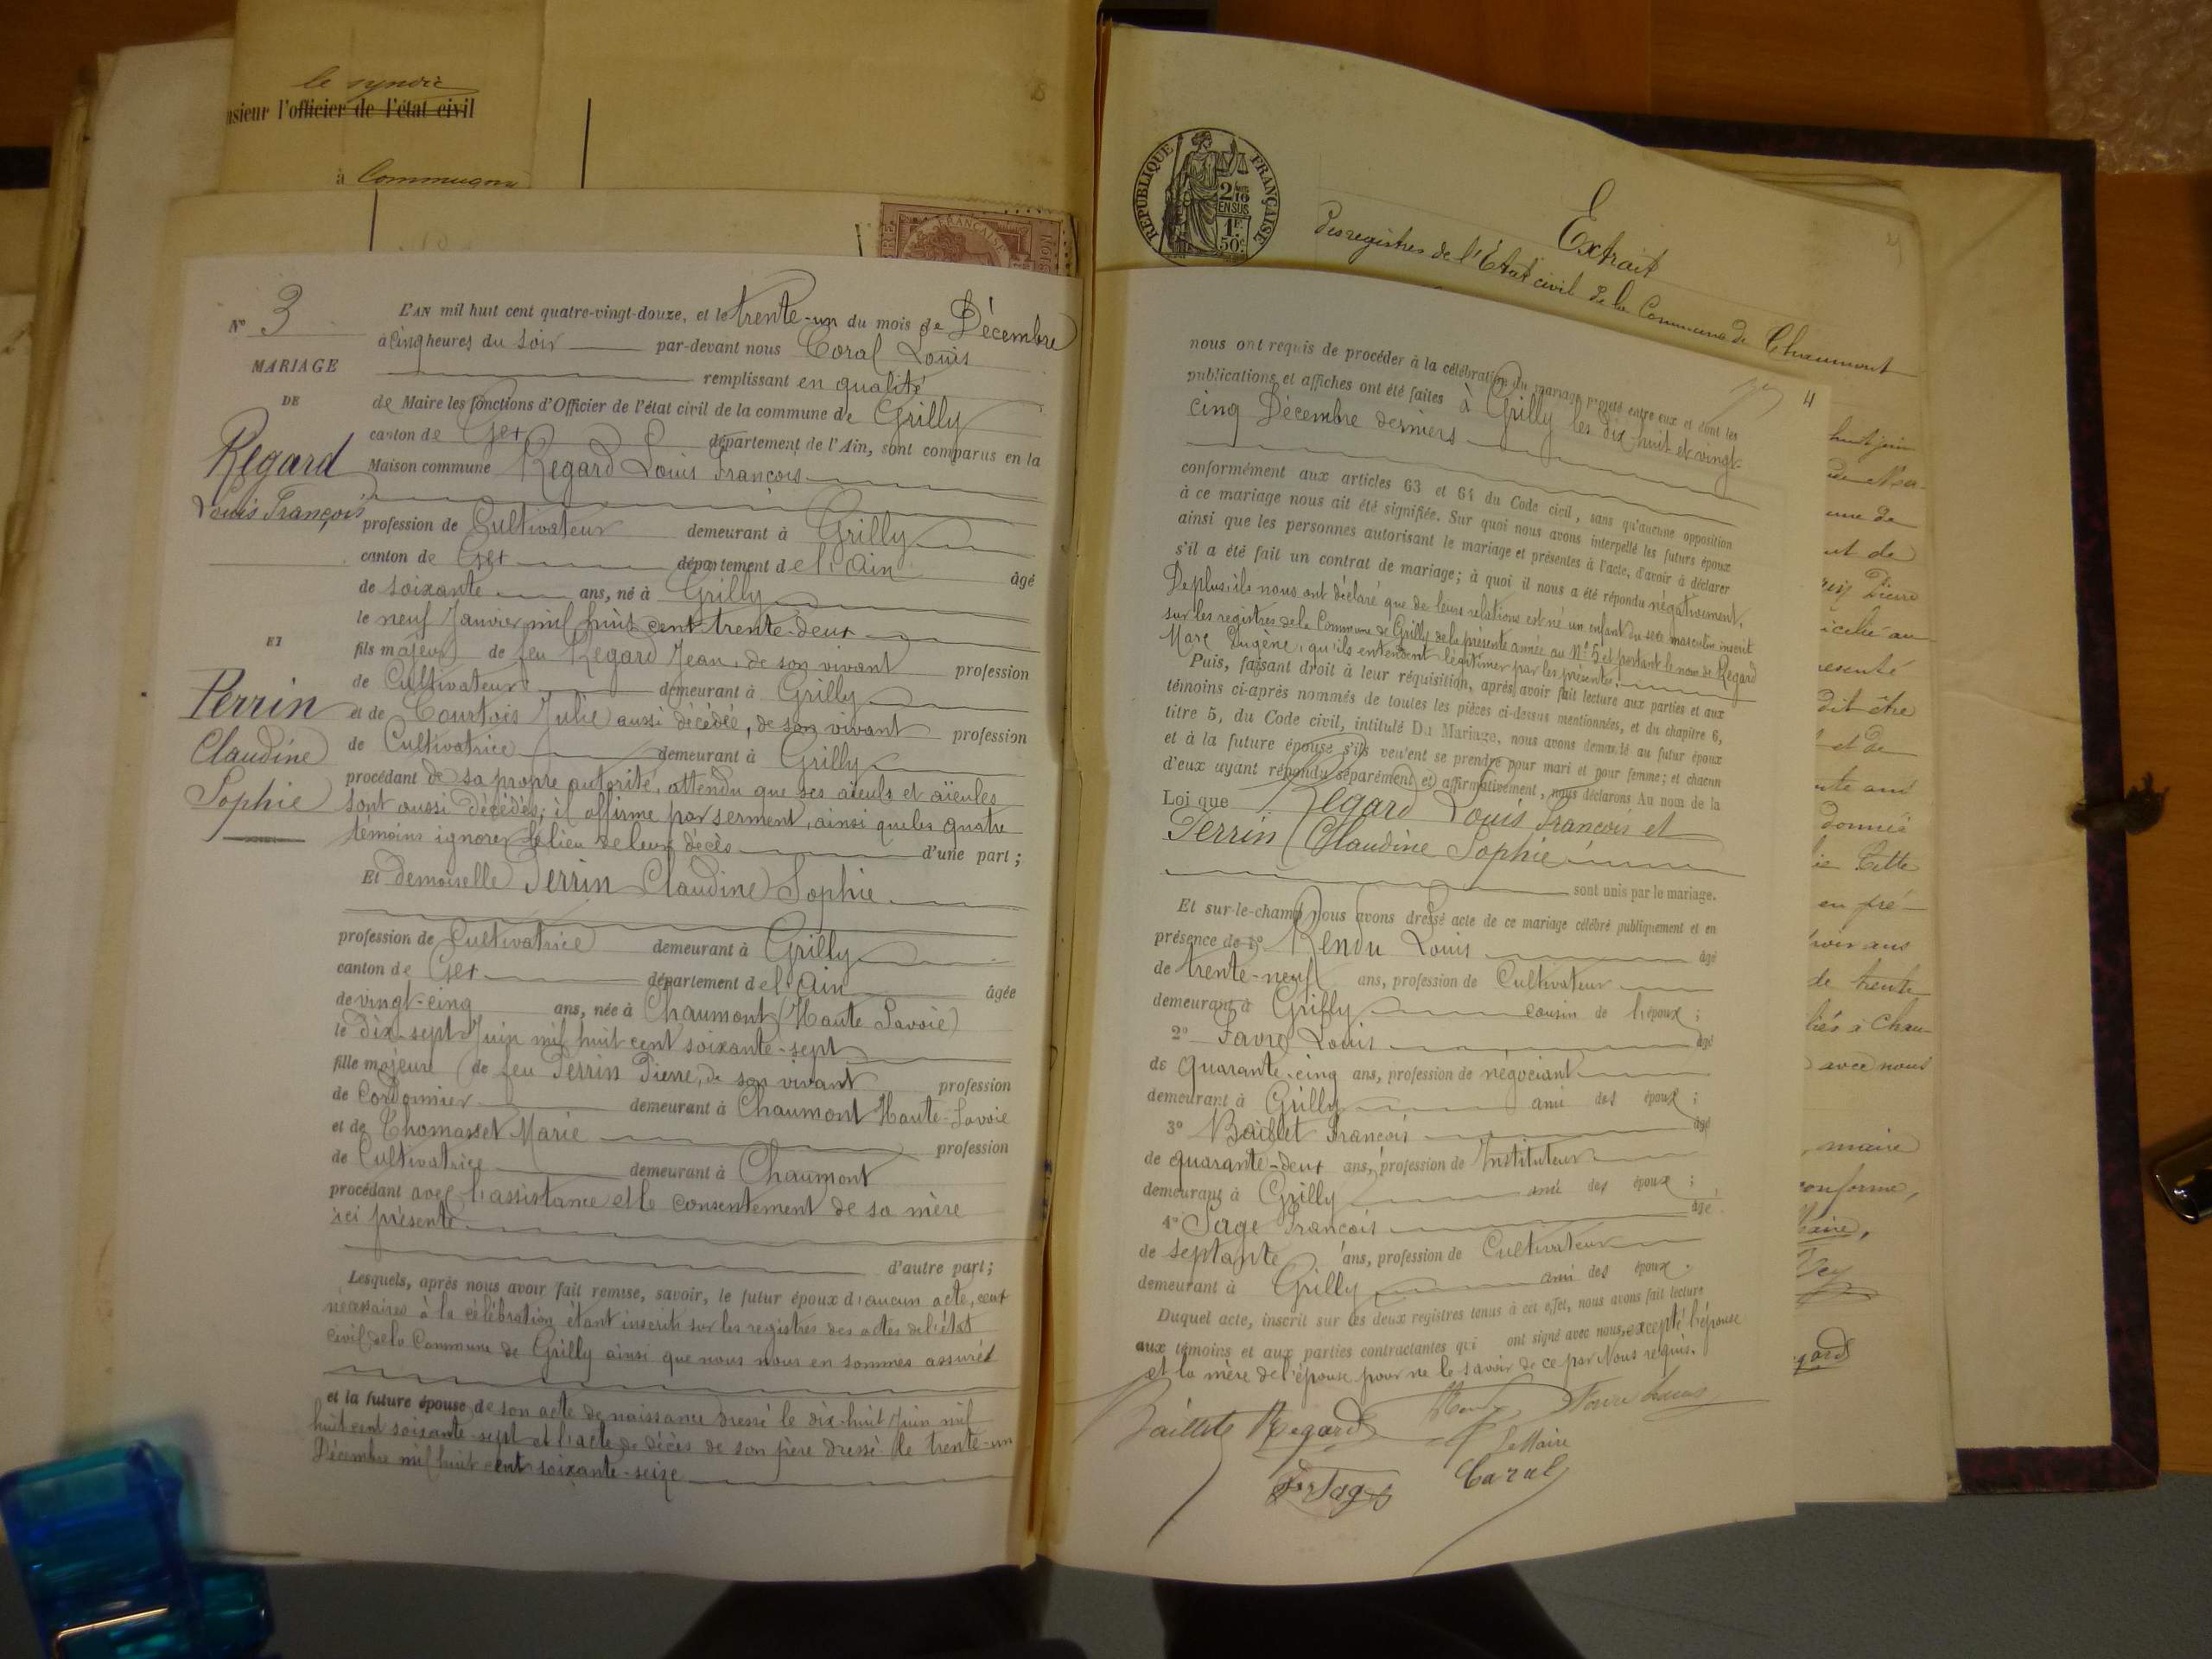 le syndic
nsieur l'officier de l'état civil
à Commugny
FRANÇAISE
Nº 3
MARIAGE
DE
Regard
Louis François
ET
Perrin
Claudine
Sophie
L'AN mil huit cent quatre-vingt-douze, et le trente-un du mois de Décembre
à cinq heures du soir par-devant nous Coral Louis
remplissant en qualité
de Maire les fonctions d'Officier de l'état civil de la commune de Grilly
canton de Gex département de l'Ain, sont comparus en la
Maison commune Regard Louis François
profession de Cultivateur demeurant à Grilly
canton de Gex département de l'Ain âgé
de soixante ans, né à Grilly
le neuf Janvier mil huit cent trente-deux
fils majeur de feu Regard Jean, de son vivant profession
de Cultivateur demeurant à Grilly
et de Courtois Julie aussi décédée, de son vivant profession
de Cultivatrice demeurant à Grilly
procédant de sa propre autorité, attendu que ses aïeuls et aïeules
sont aussi décédés; il affirme par serment, ainsi que les quatre
témoins ignorer le lieu de leur décès d'une part;
Et demoiselle Perrin Claudine Sophie
profession de Cultivatrice demeurant à Grilly
canton de Gex département de l'Ain âgée
de vingt-cinq ans, née à Chaumont (Haute Savoie)
le dix-sept Juin mil huit cent soixante-sept
fille majeure de feu Perrin Pierre, de son vivant profession
de Cordonnier demeurant à Chaumont Haute-Savoie
et de Thomasset Marie profession
de Cultivatrice demeurant à Chaumont
procédant avec l'assistance et le consentement de sa mère
ici présente
d'autre part;
Lesquels, après nous avoir fait remise, savoir, le futur époux d'aucun acte, ceux
nécessaires à la célébration étant inscrits sur les registres des actes de l'état
civil de la Commune de Grilly ainsi que nous nous en sommes assurés
et la future épouse de son acte de naissance dressé le dix-huit Juin mil
huit cent soixante-sept et l'acte de décès de son père dressé le trente-un
Décembre mil huit cent soixante-seize
RÉPUBLIQUE FRANÇAISE
2/10
EN SUS
1F.
50c
Extrait
des registres de l'Etat civil de la Commune de Chaumont
4
nous ont requis de procéder à la célébration du mariage projeté entre eux et dont les
publications et affiches ont été faites à Grilly les dix-huit et vingt-
cinq Décembre derniers
conformément aux articles 63 et 64 du Code civil, sans qu'aucune opposition
à ce mariage nous ait été signifiée. Sur quoi nous avons interpellé les futurs époux
ainsi que les personnes autorisant le mariage et présentes à l'acte, d'avoir à déclarer
s'il a été fait un contrat de mariage; à quoi il nous a été répondu négativement.
De plus, ils nous ont déclaré que de leurs relations est né un enfant du sexe masculin inscrit
sur les registres de la Commune de Grilly de la présente année au Nº 5 et portant le nom de Regard
Marc Eugène, qu'ils entendent légitimer par les présentes.
Puis, faisant droit à leur réquisition, après avoir fait lecture aux parties et aux
témoins ci-après nommés de toutes les pièces ci-dessus mentionnées, et du chapitre 6,
titre 5, du Code civil, intitulé Du Mariage, nous avons demandé au futur époux
et à la future épouse s'ils veulent se prendre pour mari et pour femme; et chacun
d'eux ayant répondu séparément et affirmativement, nous déclarons Au nom de la
Loi que Regard Louis François et
Perrin Claudine Sophie
sont unis par le mariage.
Et sur-le-champ nous avons dressé acte de ce mariage célébré publiquement et en
présence de 1º Rendu Louis âgé
de trente-neuf ans, profession de Cultivateur
demeurant à Grilly cousin de l'époux;
2º Favre Louis âgé
de quarante-cinq ans, profession de négociant
demeurant à Grilly ami des époux;
3º Baillet François âgé
de quarante-deux ans, profession de Instituteur
demeurant à Grilly ami des époux;
4º Sage François âgé
de septante ans, profession de Cultivateur
demeurant à Grilly ami des époux.
Duquel acte, inscrit sur les deux registres tenus à cet effet, nous avons fait lecture
aux témoins et aux parties contractantes qui ont signé avec nous, excepté l'épouse
et la mère de l'épouse pour ne le savoir de ce par Nous requis.
Regard
Favre Louis
Le Maire
Coral
huit juin
une de
Pierre
icilié au
résenté
dit être
et de
donnée
Cette
en pré-
de trente
liés à Chau-
avec nous
maire
conforme,